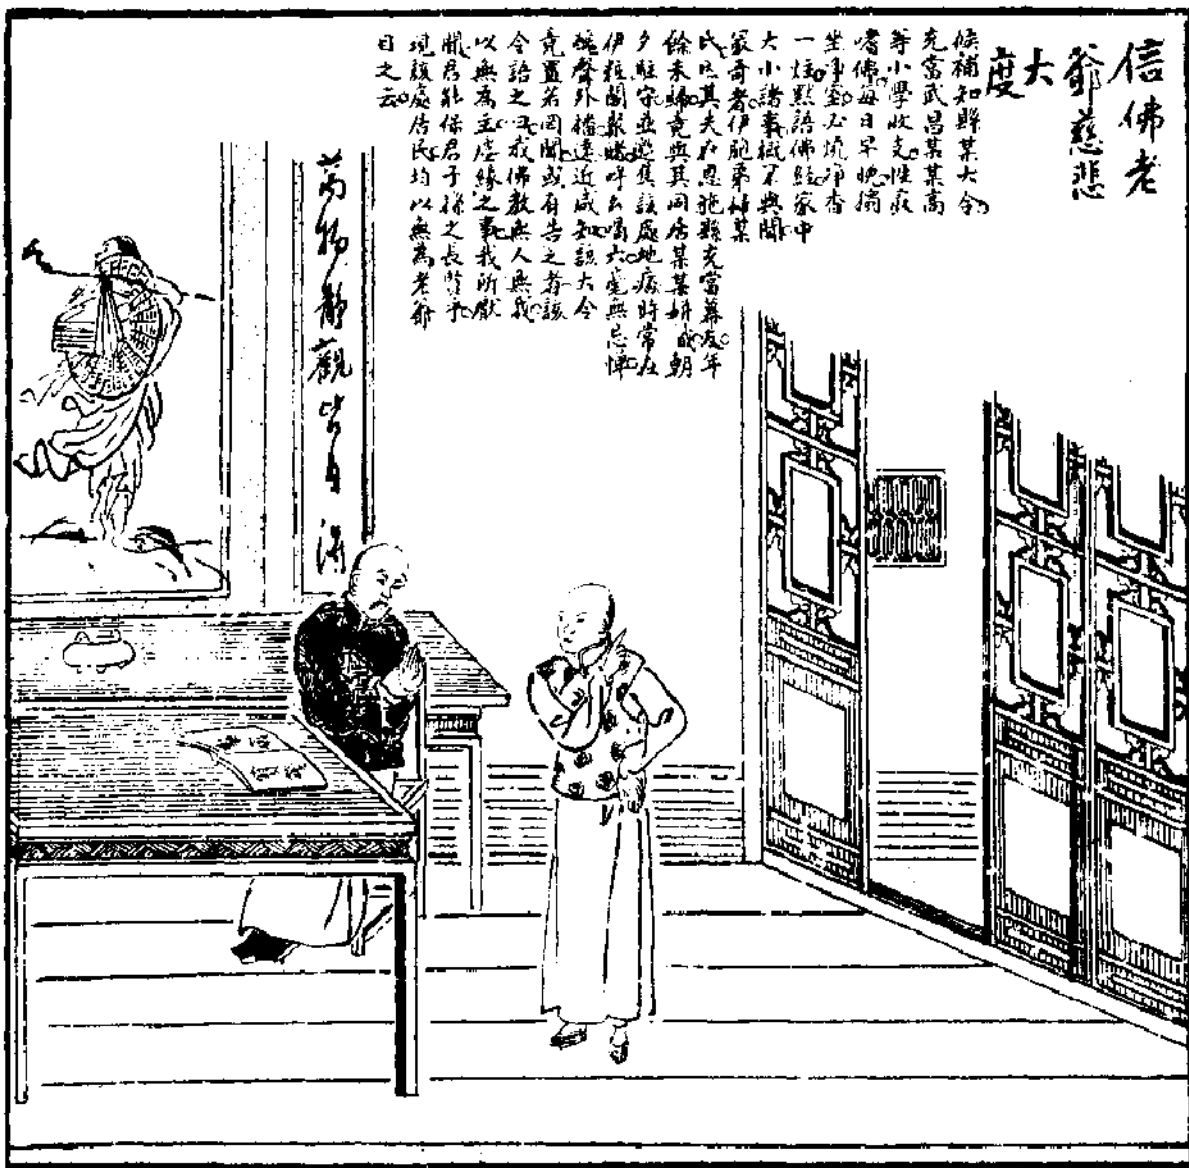 信佛老
爺慈悲
大
度
候補知縣某大令
充當武昌某某高
等小學收支性最
嗜佛每日早晚獨
坐淨室必焚净香
一炷默語佛經家中
大小諸事概不與聞
最奇者伊胞弟婦某
氏因其夫在恩施縣充當幕友年
餘未歸竟與其同居某某姘成朝
夕駐宿並邀集該處地痞時常在
伊室開聚賭呼幺喝六毫無忌憚
聲外揚遠近咸知該大令
竟置若罔聞或有告之者該
令語之曰我佛教無人無我
以無為主塵緣之事我所厭
聞君能保君子孫之長賢乎
現該處居民均以無為老爺
目之云
萬物靜觀皆自得